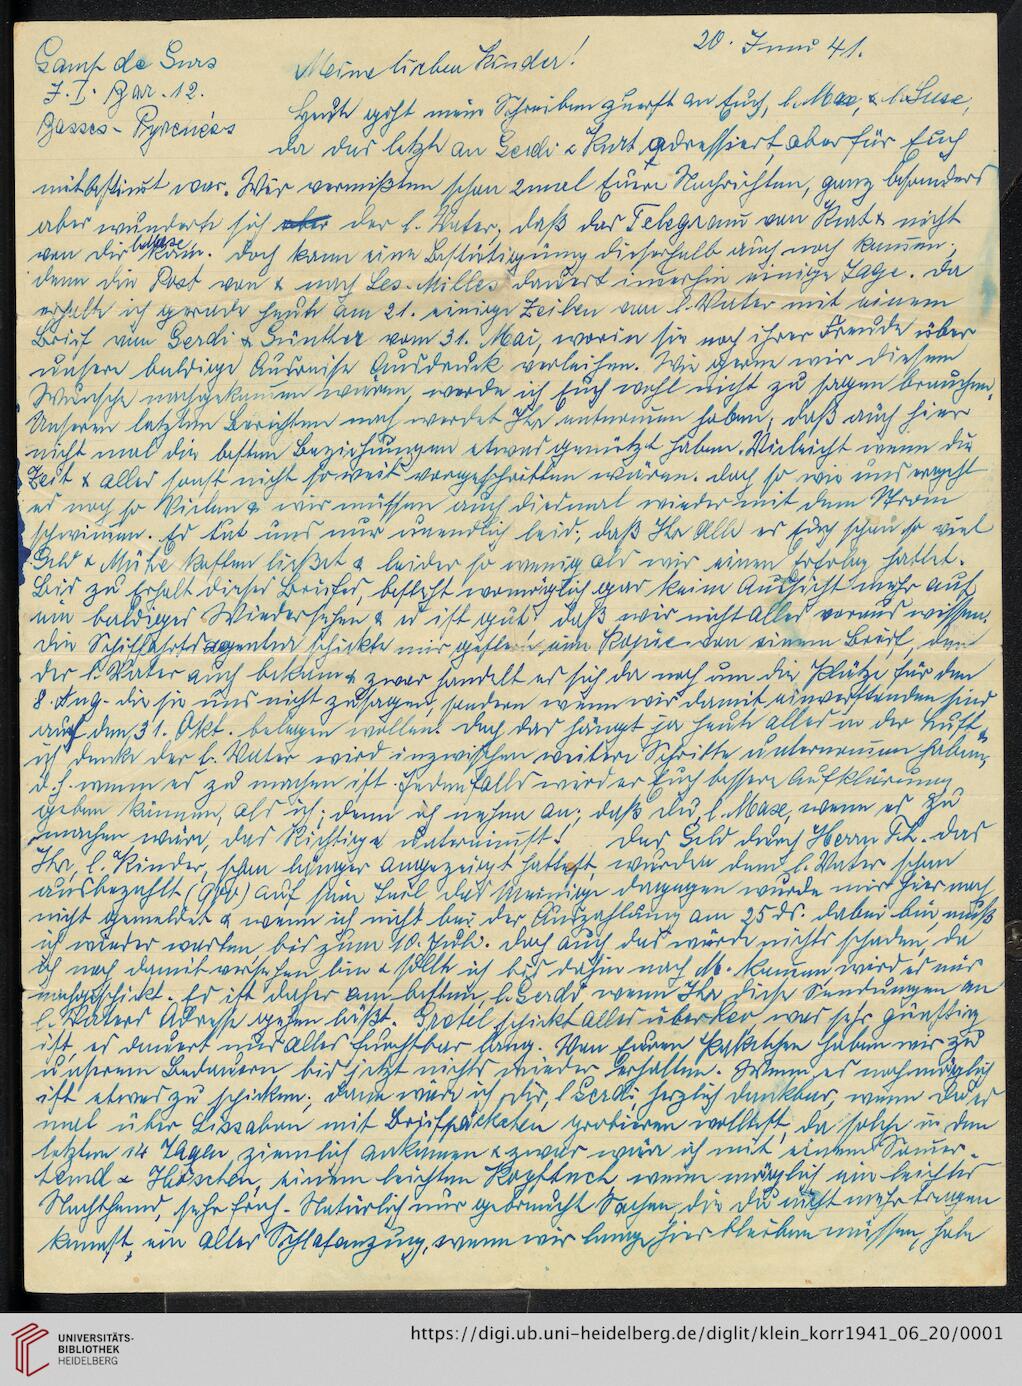 Camp de Gurs
J. I. Bar. 12.
Basses-Pyrenées
20. Juni 41.
Meine lieben Kinder!
Heute geht mein Schreiben zuerst an Euch, l. Max, & l. Luse,
da das letzte an Gerdi & Kurt adressiert, aber für Euch
mitbestimt war. Wir vermißten schon 2mal Euere Nachrichten, ganz besonders
aber wunderte sich der l. Vater, daß das Telegram von Kurt & nicht
von Dir kam. Doch kann eine Bestätigung dieserhalb auch noch kommen,
denn die Post von & nach Les-Milles dauert imerhin einige Tage. Da
erhalte ich gerade heute am 21. einige Zeilen von l. Vater mit einem
Brief von Gerdi & Günther vom 31. Mai, worin sie noch ihrer Freude über
unsere baldige Ausreise Ausdruck verleihen. Wie gerne wir diesem
Wunsche nachgekommen wären, werde ich Euch wohl nicht zu sagen brauchen.
Unseren letzten Berichten nach werdet Ihr entnomen haben, daß auch hier
nicht mal die besten Beziehungen etwas genützt haben. Vieleicht wenn die
Zeit & alles sonst nicht so weit vorgeschritten wären. doch so wie uns ergeht
es noch so Vielen & wir müssen auch diesmal wieder mit dem Strom
schwimen. Es tut uns nur unendlich leid, daß Ihr Alle es Euch schon so viel
Geld & Mühe kosten ließet & leider so wenig als wir einen Erfolg hattet.
Bis zu Erhalt dieses Briefes, besteht womöglich gar keine Aussicht mehr auf
ein baldiges Wiedersehen & es ist gut daß wir nicht alles voraus wissen.
Die Schiffahrtsagentur schickte mir gestern eine Kopie von einem Brief, den
der l. Vater auch bekam & zwar handelt es sich da noch um die Plätze für den
8. Aug. die sie uns nicht zusagen, sondern wenn wir damit einverstanden sind
auf den 31. Okt. belegen wollen. Doch das hängt ja heute alles in der Luft &
ich denke der l. Vater wird inzwischen weitere Schritte unternomen haben,
d. h. wenn es zu machen ist. Jedenfalls wird er Euch bessere Aufklärung
geben können, als ich; denn ich nehme an, daß Du, l. Maxe, wenn es zu
machen wäre, das Richtige unternimst. Das Geld durch Herrn Th. das
Ihr, l. Kinder, schon länger angezeigt hattet, wurden dem l. Vater schon
ausbezahlt auf sein Teil das Meinige dagegen wurde mir hier noch
nicht gemeldet & wenn ich nicht bei der Auszahlung am 25 ds. dabei bin, muß
ich wieder warten, bis zum 10. Juli. Doch auch das würde nichts schaden, da
ich noch damit versehen bin & sollte ich bis dahin nach M. komen, wird es mir
nachgeschickt. Es ist daher am besten, l. Gerdi, wenn Ihr diese Sendungen an
l. Vaters Adresse gehen läßt. Gretel schickt alles über was sehr günstig
ist, es dauert nur alles furchtbar lang. Von Euren Paketchen haben wir zu
unserem Bedauern bis jetzt nichts wieder erhalten. Wenn es noch möglich
ist etwas zu schicken, dann wäre ich Dir, l. Gerdi, herzlich dankbar, wenn Du es
mal über Lissabon mit Briefpäckchen probieren wolltest, da solche in den
letzten 14 Tagen ziemlich ankamen & zwar wäre ich mit einem Somer-
hemd & Höschen, einem leichten Kopftuch, wenn möglich ein leichtes
Nachthemd, sehr froh. Natürlich nur gebrauchte Sachen, die Du nicht mehr tragen
kannst, ein alter Schlafanzug, wenn wir lange hier bleiben müssen, habe
UNIVERSITÄTS-
BIBLIOTHEK
HEIDELBERG
https://digi.ub.uni-heidelberg.de/diglit/klein_korr1941_06_20/0001